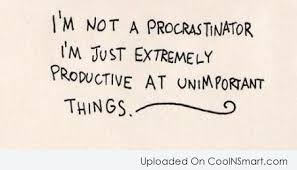 I'M NOT A PROCRASTINATOR
I'M JUST EXTREMELY
PRODUCTIVE AT UNIMPORTANT
THINGS.
Uploaded On CoolNSmart.com